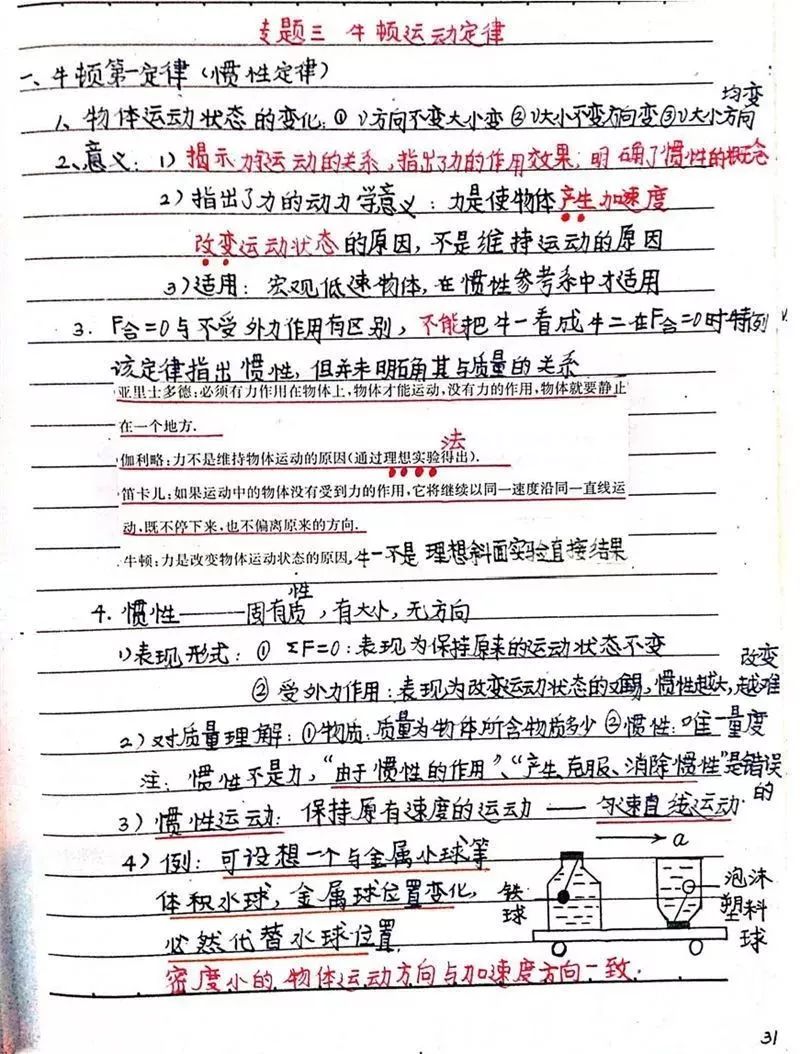 专题三 牛顿运动定律
一、牛顿第一定律(惯性定律)
1、物体运动状态的变化:①v方向不变大小变②v大小不变方向变③v大小方向均变
2、意义:1)揭示力和运动的关系,指出了力的作用效果;明确了惯性的概念
2)指出了力的动力学意义:力是使物体产生加速度
改变运动状态的原因,不是维持运动的原因
3)适用:宏观低速物体,在惯性参考系中才适用
3.F合=0与不受外力作用有区别,不能把牛一看成牛二在F合=0时特例
该定律指出惯性,但并未明确其与质量的关系
亚里士多德:必须有力作用在物体上,物体才能运动,没有力的作用,物体就要静止
在一个地方.
伽利略:力不是维持物体运动的原因(通过理想实验法得出).
笛卡儿:如果运动中的物体没有受到力的作用,它将继续以同一速度沿同一直线运
动,既不停下来,也不偏离原来的方向.
牛顿:力是改变物体运动状态的原因,牛一不是理想斜面实验直接结果
4.惯性——固有性质,有大小,无方向
1)表现形式:①ΣF=0:表现为保持原来的运动状态不变
②受外力作用:表现为改变运动状态的难易,惯性越大,改变越难
2)对质量理解:①物质:质量为物体所含物质多少②惯性:唯一量度
注:惯性不是力,“由于惯性的作用”、“产生、克服、消除惯性”是错误的
3)惯性运动:保持原有速度的运动——匀速直线运动
4)例:可设想一个与金属小球等
体积水球,金属球位置变化,
必然代替水球位置
密度小的物体运动方向与加速度方向一致.
a
铁球
泡沫塑料球
31